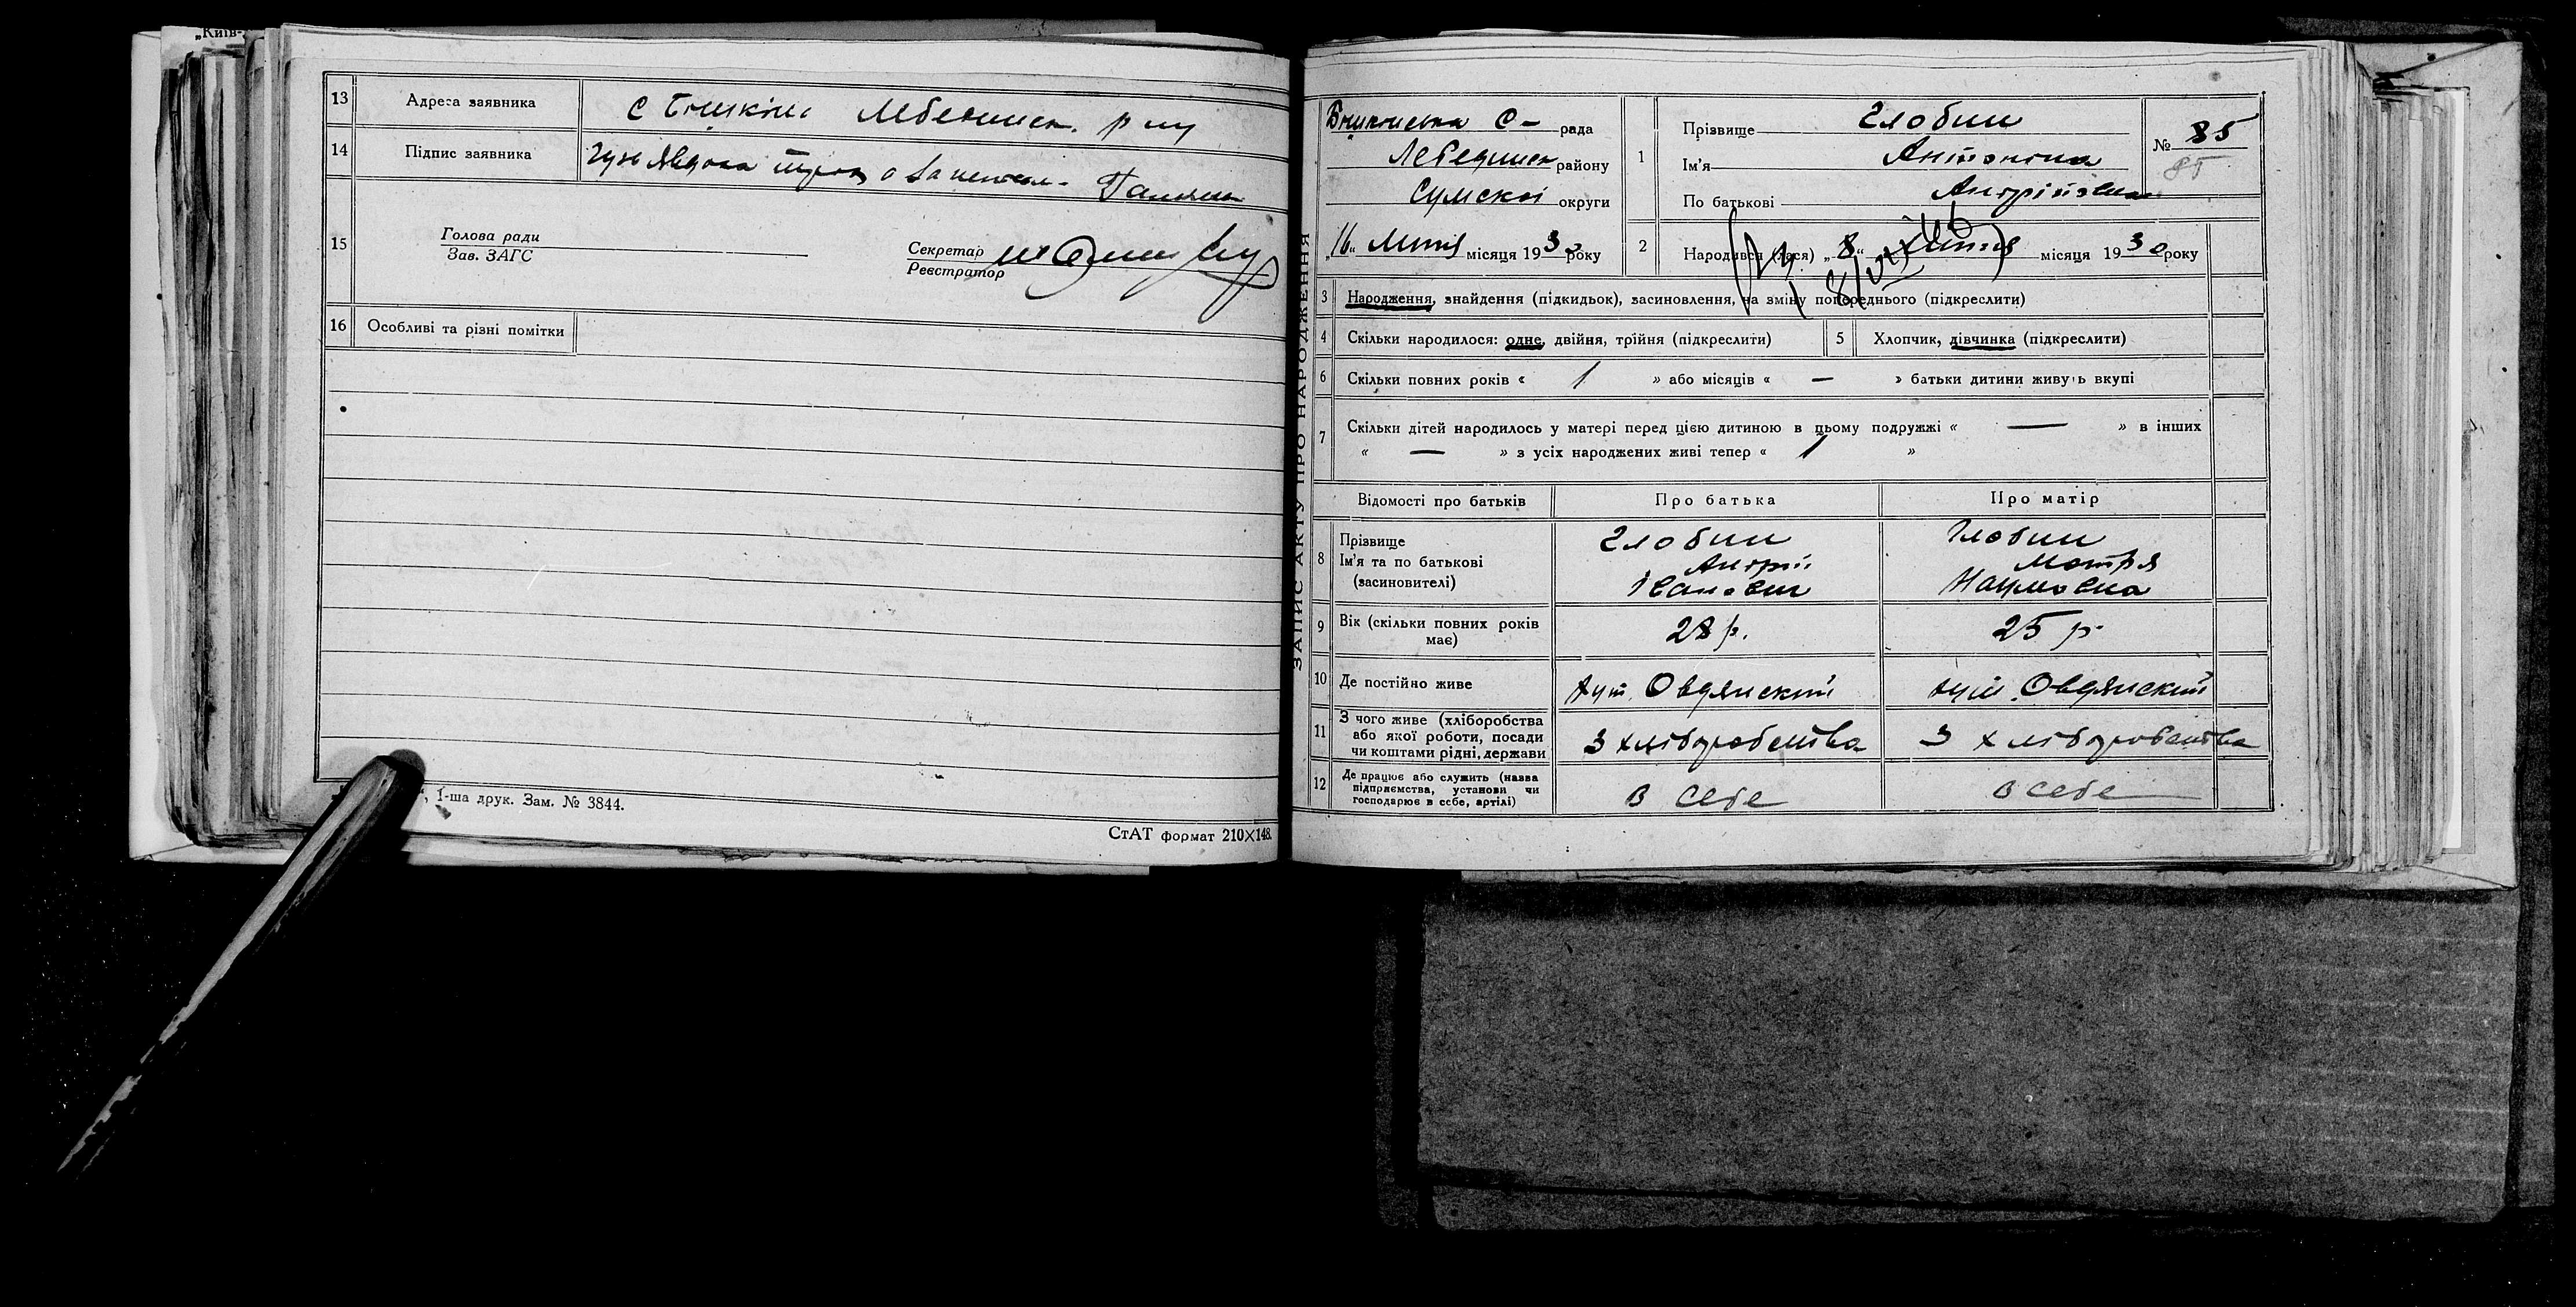 „Київ-
13 Адреса заявника с Бишкінь Лебединськ. р ну
14 Підпис заявника Гузь Явдоха
15 Голова ради
Зав. ЗАГС
Секретар
Реєстратор
16 Особливі та різні помітки
1-ша друк. Зам. № 3844.
СтАТ формат 210×148.
ЗАПИС АКТУ ПРО НАРОДЖЕННЯ
Бишкінська С- рада
Лебединськ району
Сумскої округи
„16“ Липня місяця 1930 року
1 Прізвище Глобин
Ім'я Антоніна
По батькові Андріївна
№ 85
85
2 Народився (лася) „8“ Липня місяця 1930 року
8/VII
3 Народження, знайдення (підкидьок), засиновлення, на зміну попереднього (підкреслити)
4 Скільки народилося: одне, двійня, трійня (підкреслити) 5 Хлопчик, дівчинка (підкреслити)
6 Скільки повних років « 1 » або місяців « — » батьки дитини живуть вкупі
7 Скільки дітей народилось у матері перед цією дитиною в цьому подружжі « — » в інших
« — » з усіх народжених живі тепер « 1 »
Відомості про батьків Про батька Про матір
8 Прізвище
Ім'я та по батькові
(засиновителі)
Глобин
Андрій
Іванович
Глобин
Мотря
Наумовна
9 Вік (скільки повних років має) 28 р. 25 р.
10 Де постійно живе хут. Овдянский хут. Овдянский
11 З чого живе (хліборобства
або якої роботи, посади
чи коштами рідні, держави
З хліборобства З хліборобства
12 Де працює або служить (назва
підприємства, установи чи
господарює в себе, артілі)
в себе в себе